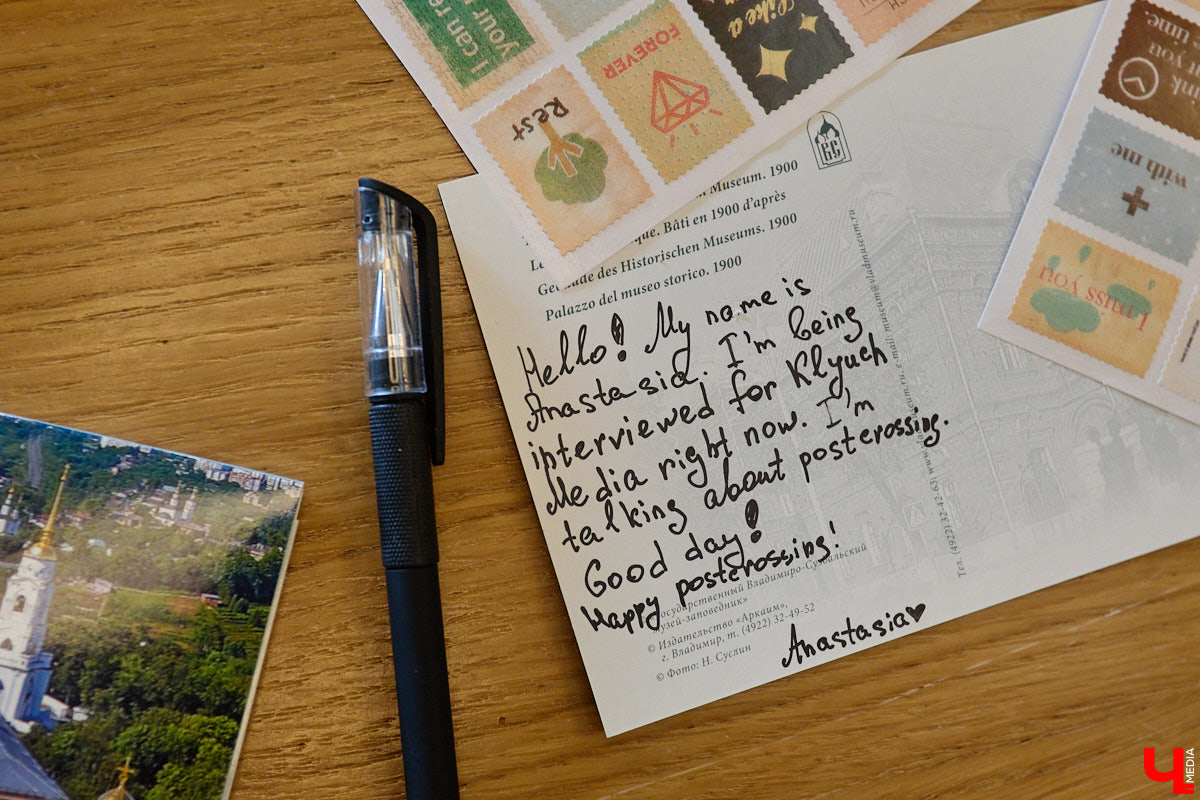 I can re
your
FOREVER
Like a
Rest
ink
you
r time.
with me
I miss you
БС
Museum. 1900
que. Bâti en 1900 d'après
des Historischen Museums. 1900
Palazzo del museo storico. 1900
Hello! My name is
Anastasia. I'm being
interviewed for Klyuch
Media right now. I'm
talking about posterossing.
Good day!
Happy posterossing!
Anastasia♥
Государственный Владимиро-Суздальский
музей-заповедник»
© Издательство «Аркаим»,
г. Владимир, т. (4922) 32-49-52
© Фото: Н. Суслин
Тел. (4922) 32-42-63; www. museum.ru, e-mail: museum@vladmuseum.ru
MEDIA